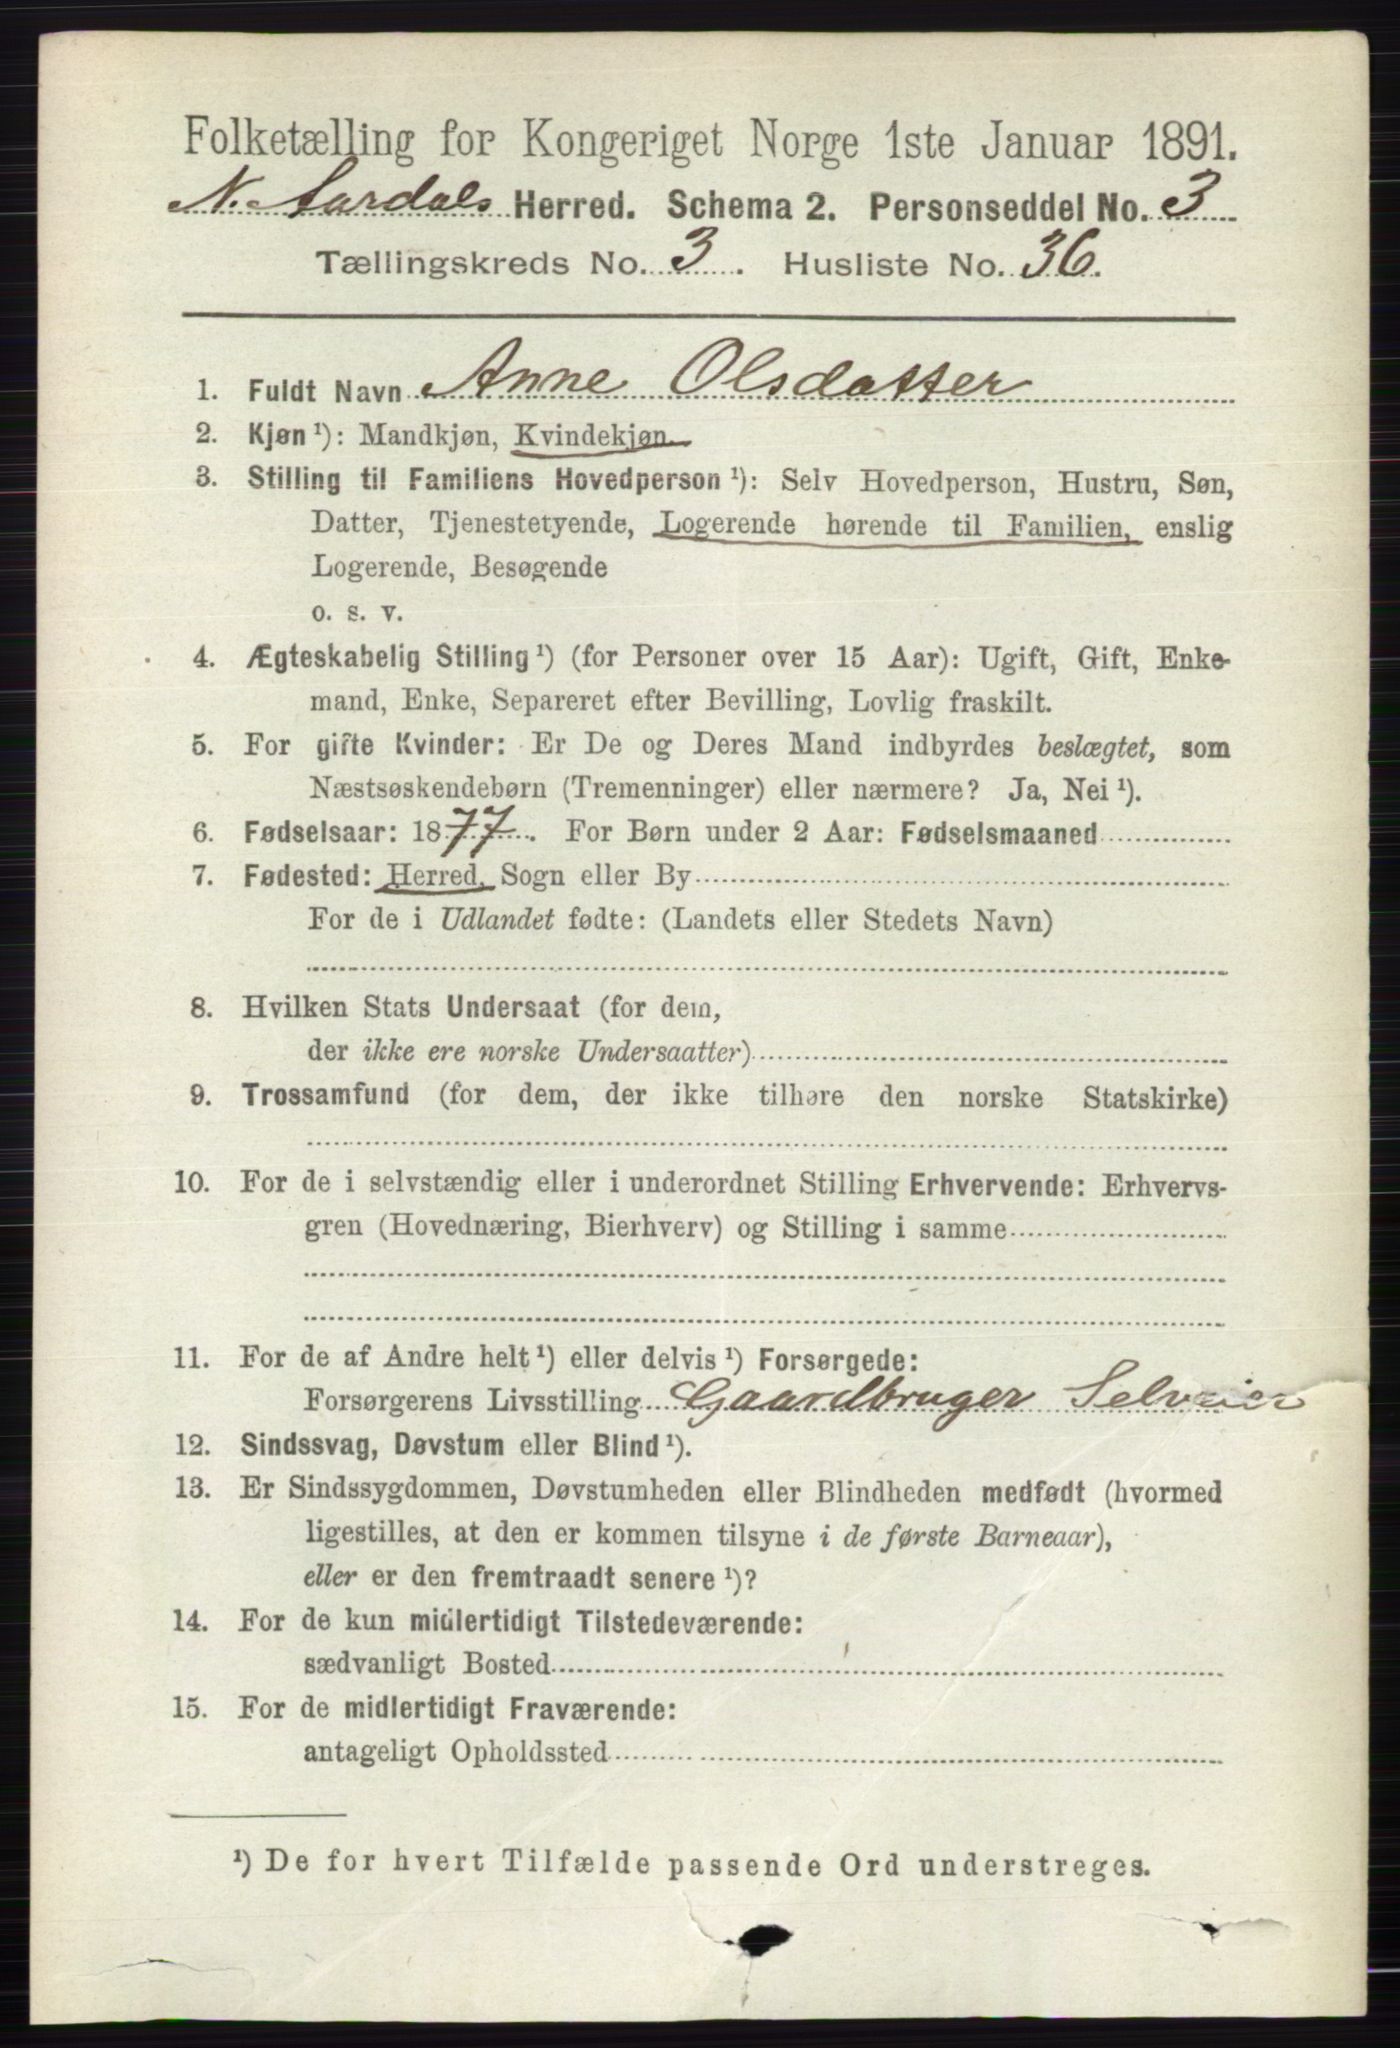 Folketælling for Kongeriget Norge 1ste Januar 1891.
N. Aurdals Herred. Schema 2. Personseddel No. 3
Tællingskreds No. 3. Husliste No. 36.
1. Fuldt Navn Anne Olsdatter
2. Kjøn ¹): Mandkjøn, Kvindekjøn.
3. Stilling til Familiens Hovedperson ¹): Selv Hovedperson, Hustru, Søn,
Datter, Tjenestetyende, Logerende hørende til Familien, enslig
Logerende, Besøgende
o. s. v.
4. Ægteskabelig Stilling ¹) (for Personer over 15 Aar): Ugift, Gift, Enke-
mand, Enke, Separeret efter Bevilling, Lovlig fraskilt.
5. For gifte Kvinder: Er De og Deres Mand indbyrdes beslægtet, som
Næstsøskendebørn (Tremenninger) eller nærmere? Ja, Nei ¹).
6. Fødselsaar: 1877. For Børn under 2 Aar: Fødselsmaaned
7. Fødested: Herred, Sogn eller By
For de i Udlandet fødte: (Landets eller Stedets Navn)
8. Hvilken Stats Undersaat (for dem,
der ikke ere norske Undersaatter)
9. Trossamfund (for dem, der ikke tilhøre den norske Statskirke)
10. For de i selvstændig eller i underordnet Stilling Erhvervende: Erhvervs-
gren (Hovednæring, Bierhverv) og Stilling i samme
11. For de af Andre helt ¹) eller delvis ¹) Forsørgede:
Forsørgerens Livsstilling Gaardbruger Selveier
12. Sindssvag, Døvstum eller Blind ¹).
13. Er Sindssygdommen, Døvstumheden eller Blindheden medfødt (hvormed
ligestilles, at den er kommen tilsyne i de første Barneaar),
eller er den fremtraadt senere ¹)?
14. For de kun midlertidigt Tilstedeværende:
sædvanligt Bosted
15. For de midlertidigt Fraværende:
antageligt Opholdssted
¹) De for hvert Tilfælde passende Ord understreges.